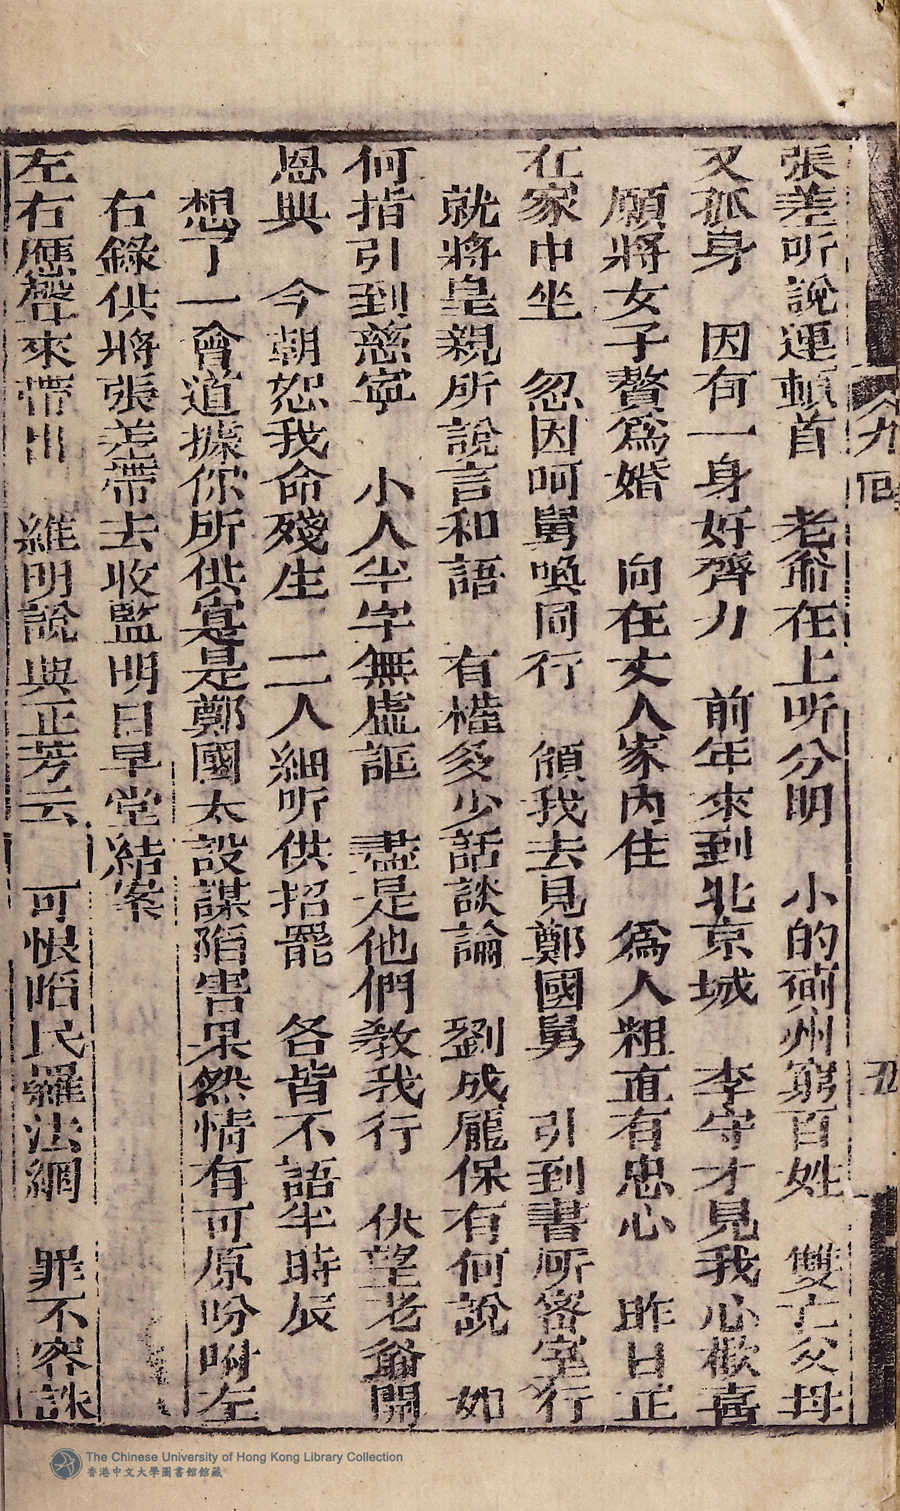 張差听說連頓首　老爺在上听分明　小的蓟州窮百姓　雙亡父母
又孤身　因有一身好膂力　前年來到北京城　李守才見我心歡喜
願將女子贅爲婚　向在丈人家內住　爲人粗直有忠心　昨日正
在家中坐　忽因呵舅喚同行　領我去見鄭國舅　引到書所密室行
就將皇親所說言和語　有權多少話談論　劉成龐保有何說　如
何指引到慈寧　小人半字無虛謳　盡是他們教我行　伏望老爺開
恩典　今朝恕我命殘生　二人細听供招罷　各皆不語半時辰
想了一會道據你所供寔是鄭國太設謀陷害果然情有可原吩咐左
右錄供將張差帶去收監明日早堂結案
左右應聲來帶出　維明說與正芳云　可恨昭民羅法網　罪不容誅
The Chinese University of Hong Kong Library Collection
香港中文大學圖書館館藏